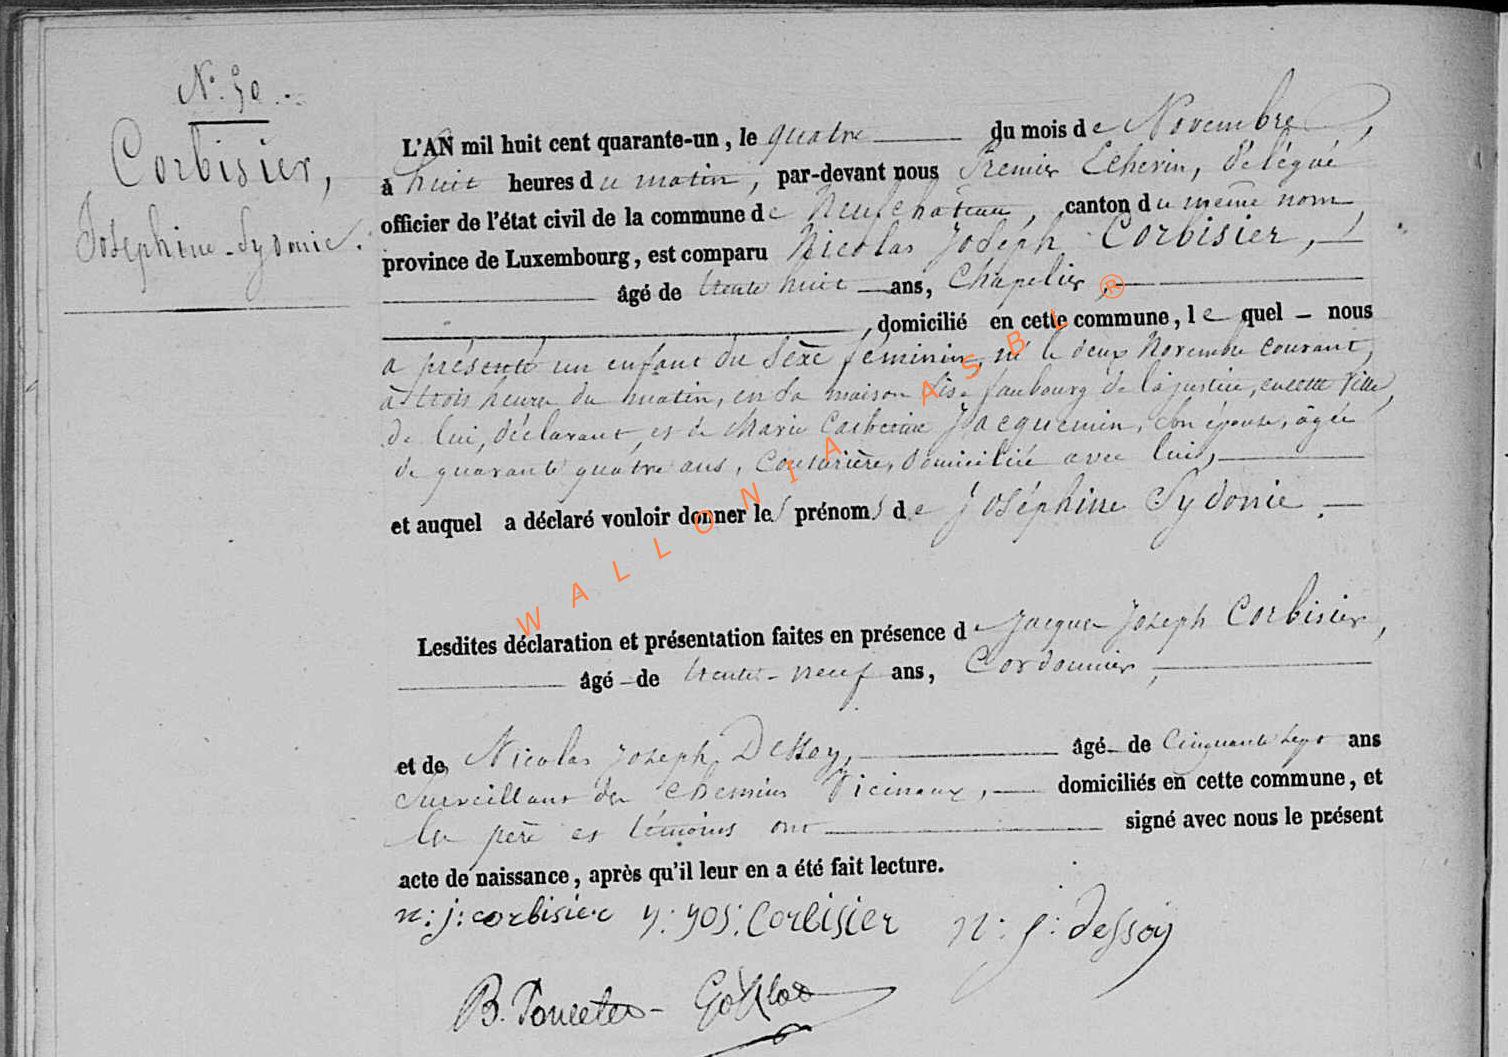 N°. 50.
Corbisier,
Joséphine-Sydonie.
L'AN mil huit cent quarante-un, le quatre du mois de Novembre,
à huit heures du matin, par-devant nous Premier Echevin, délégué
officier de l'état civil de la commune de Neufchâteau, canton du même nom,
province de Luxembourg, est comparu Nicolas Joseph Corbisier,
âgé de trente huit ans, Chapelier,
, domicilié en cette commune, lequel nous
a présenté un enfant du sèxe féminin, né le deux Novembre courant,
à trois heures du matin, en sa maison sise faubourg de la justice, en cette ville,
de lui, déclarant, et de Marie Catherine Jacquemin, son épouse, âgée
de quarante quatre ans, Couturière, domiciliée avec lui,
et auquel a déclaré vouloir donner les prénoms de Joséphine Sydonie.
Lesdites déclaration et présentation faites en présence de Jacques Joseph Corbisier,
âgé de trente-neuf ans, Cordonnier,
et de Nicolas Joseph Dessoy, âgé de Cinquante sept ans
Surveillant des chemins Vicinaux, domiciliés en cette commune, et
les père et témoins ont signé avec nous le présent
acte de naissance, après qu'il leur en a été fait lecture.
n: j: corbisier J: JOS: Corbisier n: j: dessoy
B. Poncelet
WALLONIA ASBL ®